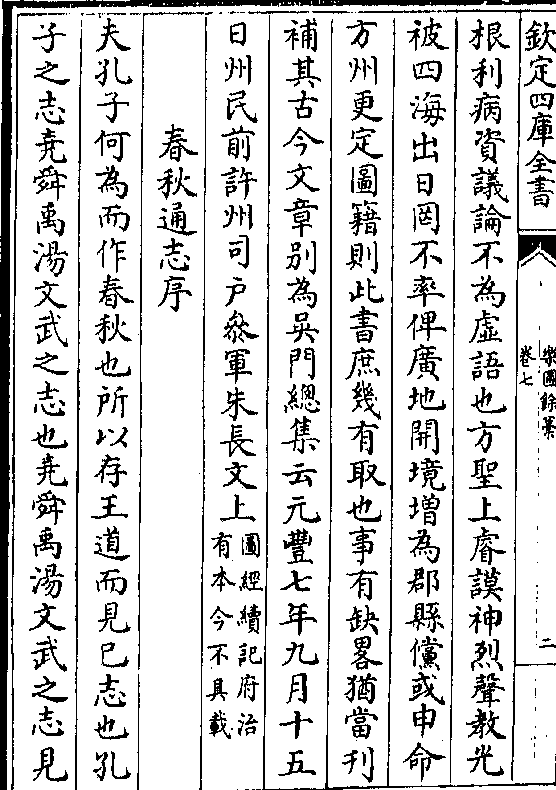 欽定四庫全書
樂圃餘藁
卷七
二
根利病資議論不為虛語也方聖上睿謨神烈聲教光
被四海出日罔不率俾廣地開境增為郡縣儻或申命
方州更定圖籍則此書庶幾有取也事有缺畧猶當刋
補其古今文章别為吳門總集云元豐七年九月十五
日州民前許州司戶叅軍朱長文上圖經續記府治
有本今不具載
春秋通志序
夫孔子何為而作春秋也所以存王道而見已志也孔
子之志堯舜禹湯文武之志也堯舜禹湯文武之志見